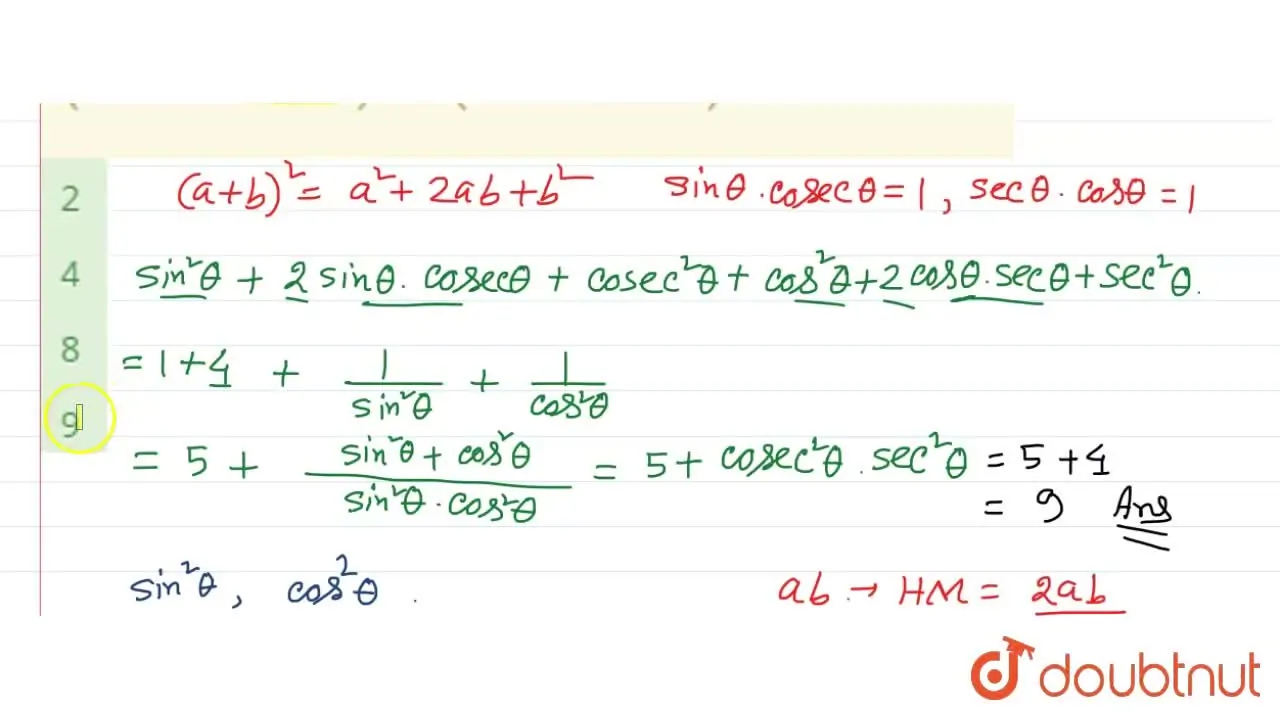 2
(a+b)² = a² + 2ab + b² sinθ . cosecθ = 1 , secθ . cosθ = 1
4
sin²θ + 2 sinθ . cosecθ + cosec²θ + cos²θ + 2 cosθ . secθ + sec²θ .
8
= 1 + 4 + 1/sin²θ + 1/cos²θ
9
= 5 + (sin²θ + cos²θ)/(sin²θ . cos²θ) = 5 + cosec²θ . sec²θ = 5 + 4
= 9 Ans
sin²θ , cos²θ . ab → HM = 2ab
doubtnut